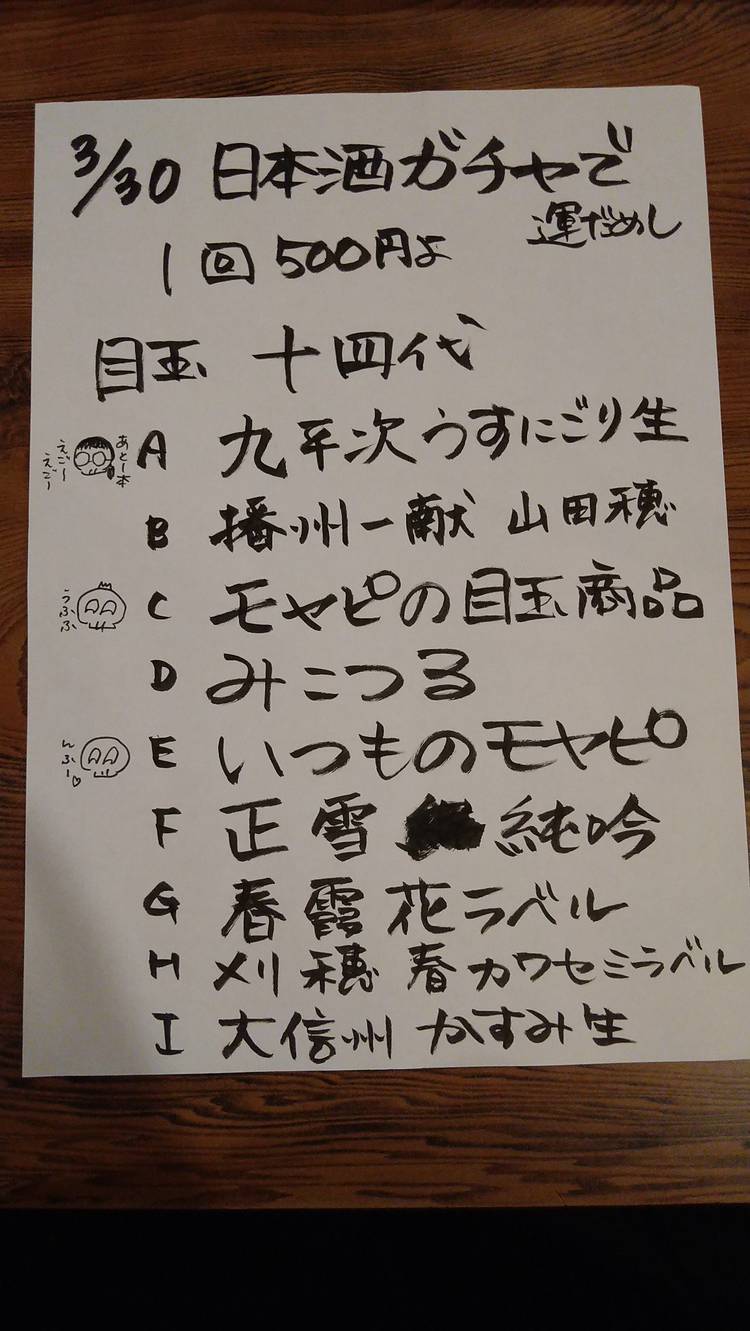 3/30 日本酒ガチャで
運だめし
1回500円よ
目玉 十四代
あと一本
えごー
えごー
A 九平次うすにごり生
B 播州一献 山田穂
うふふ
C モヤピの目玉商品
D みこつる
んふー♡
E いつものモヤピ
F 正雪 純吟
G 春霞 花ラベル
H 刈穂 春カワセミラベル
I 大信州 かすみ生